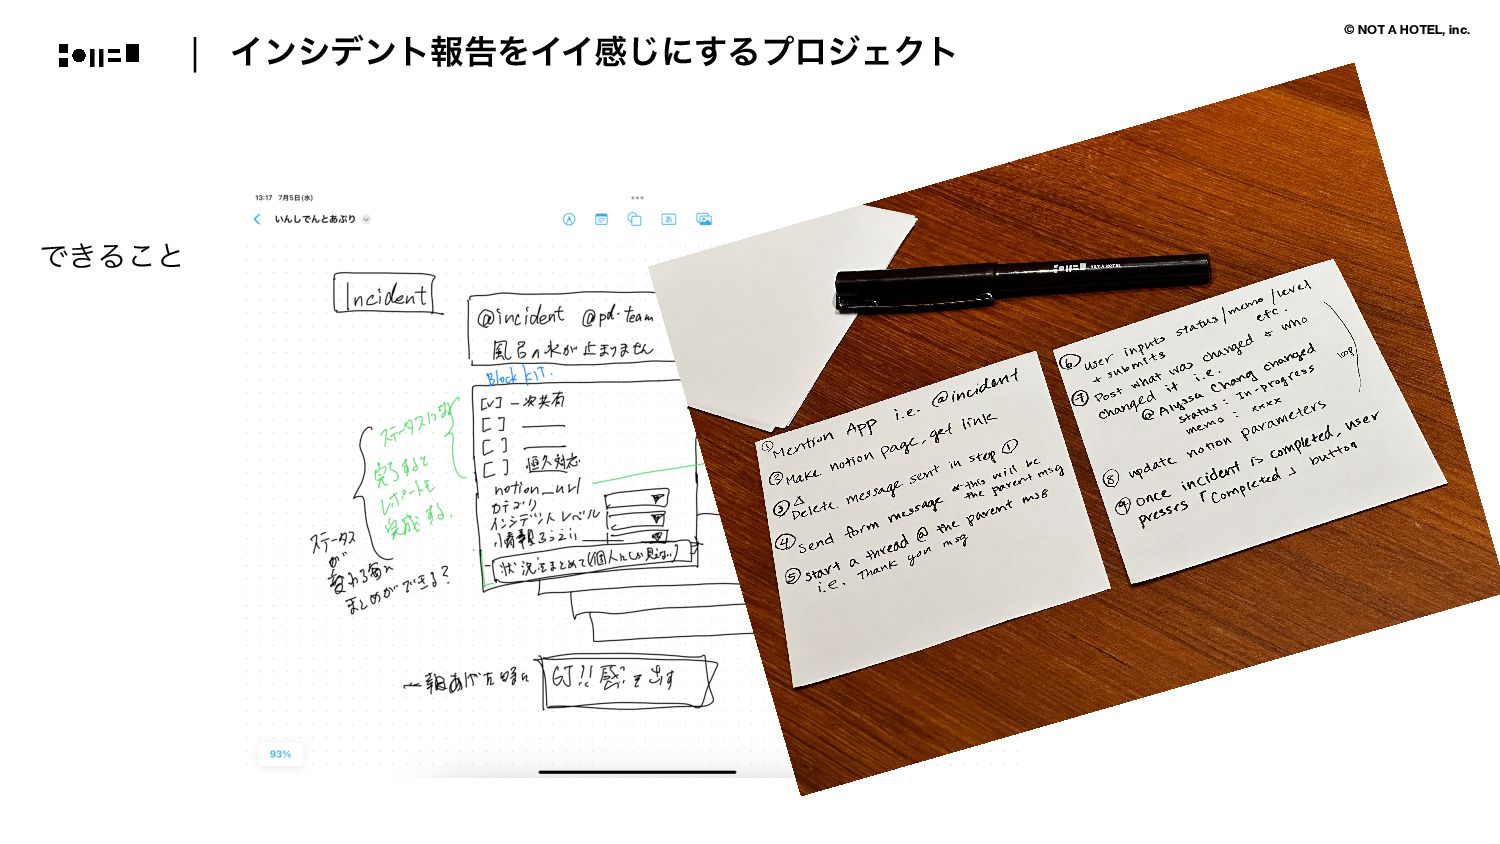 インシデント報告をイイ感じにするプロジェクト
© NOT A HOTEL, inc.
できること
13:17 7月5日(水)
いんしでんとあぷり
Incident
@incident @pd-team
風呂の水が止まりません
Block KIT.
[v] 一次共有
[ ]
[ ]
[ ] 恒久対応
notion_url
カテゴリ
インシデントレベル
状況をまとめて(個人にしか見えない)
完了すると
レポートを
完成する.
ステータス
が
変わる毎に
まとめができる?
一報あげた時に
GJ!! 感を出す
93%
NOT A HOTEL
① Mention App i.e. @incident
② Make notion page, get link
③ Delete message sent in step ①
④ Send form message * this will be
the parent msg
⑤ start a thread @ the parent msg
i.e. Thank you msg
⑥ user inputs status/memo/level
etc.
+ submits
⑦ Post what was changed + who
changed it i.e.
@ Alyssa Chang changed
status: In-progress
memo: xxxx
loop
⑧ update notion parameters
⑨ once incident is completed, user
presses 「Completed」 button